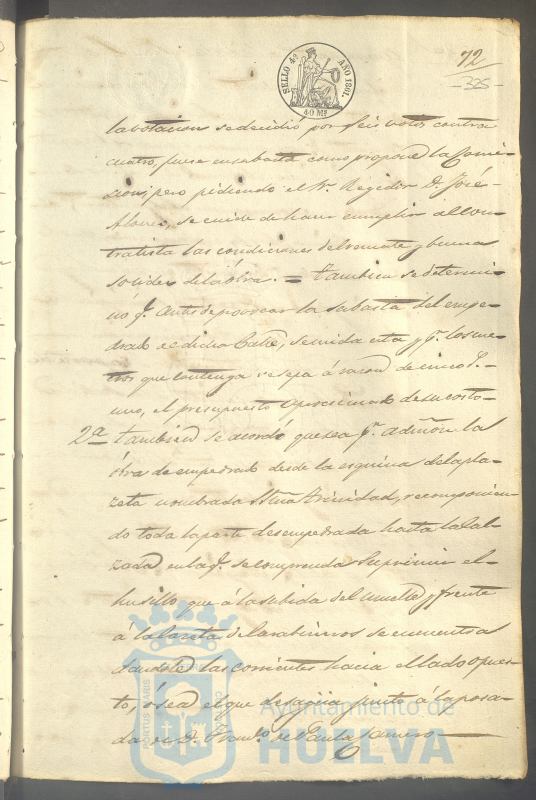 72
-325-
SELLO 4º AÑO 1861.
40 Mª
la votacion se decidió por seis votos contra
cuatro, fuese en subasta como propone la Comi-
sion, pero pidiendo el Sr. Regidor D. José
Alonso, se cuide de hacer cumplir al con-
tratista las condiciones del remate y buena
solidez de la obra. = Tambien se determi-
nó q. antes de proveer la subasta del empe-
drado de dicha Calle, se mida esta y pr. los me-
tros que contenga se sepa á razon de cinco
uno, el presupuesto aproximado de su costo-
2ª Tambien se acordó que sea pr. admon. la
obra de empedrado desde la esquina de la pla-
zeta nombrada Stma Trinidad, recomponien-
do toda la parte desempedrada hasta la Cal-
zada en la q. se comprenda suprimir el
husillo que á la subida del muelle y frente
á la caseta de Carabineros se encuentra
dandole las corrientes hacia el lado opues-
to, ó sea el que desagua junto á la posa-
da de D. Franco. de Paula
PORTUS MARIS
Ayuntamiento de
HUELVA